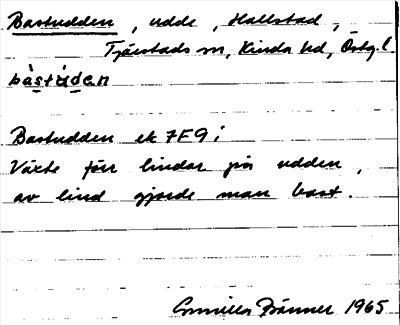 Bastudden, udde, Hallstad,
Tjärstads sn, Kinda hd, Östgl.
bàstu̇den
Bastudden ek 7F9i
Växte förr lindar på udden,
av lind gjorde man bast.
Gunilla Bränner 1965